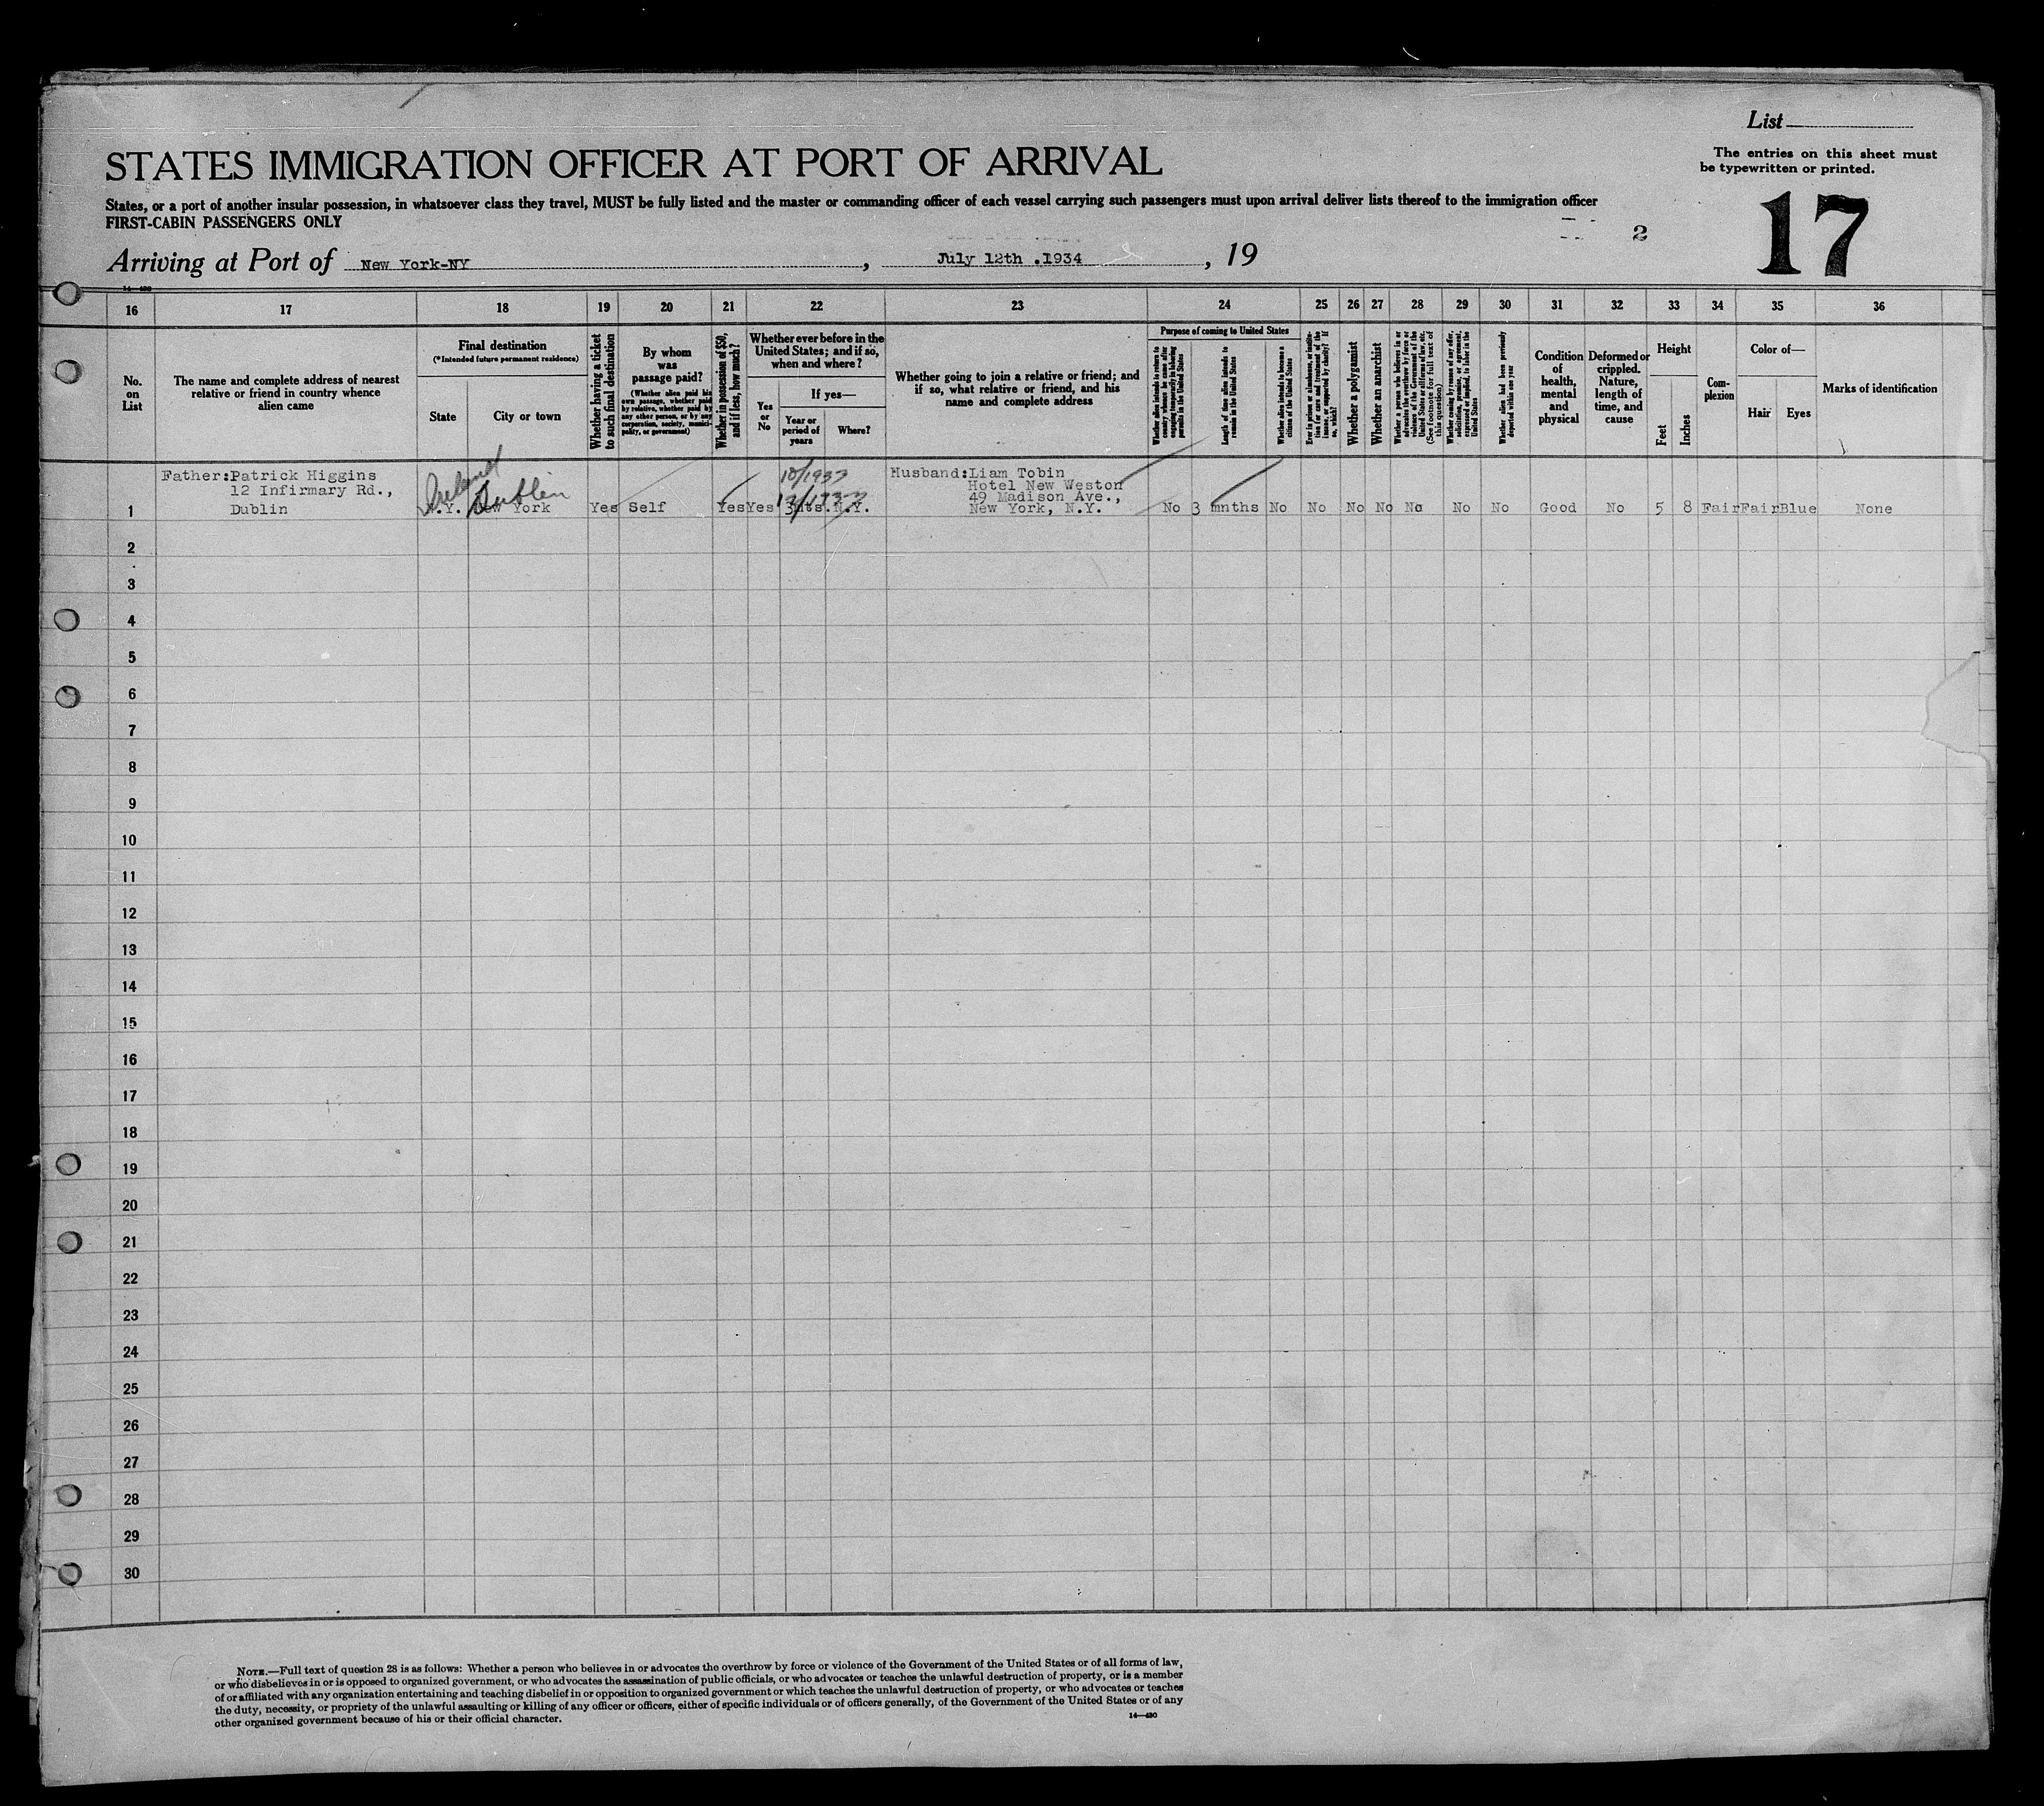 List
STATES IMMIGRATION OFFICER AT PORT OF ARRIVAL
The entries on this sheet must
be typewritten or printed.
States, or a port of another insular possession, in whatsoever class they travel, MUST be fully listed and the master or commanding officer of each vessel carrying such passengers must upon arrival deliver lists thereof to the immigration officer
FIRST-CABIN PASSENGERS ONLY
2
17
Arriving at Port of New York-NY, July 12th .1934, 19
14—430
16 17 18 19 20 21 22 23 24 25 26 27 28 29 30 31 32 33 34 35 36
No.
on
List
The name and complete address of nearest
relative or friend in country whence
alien came
Final destination
(*Intended future permanent residence)
State
City or town
Whether having a ticket
to such final destination
By whom
was
passage paid?
(Whether alien paid his
own passage, whether paid
by relative, whether paid by
any other person, or by any
corporation, society, munici-
pality, or government)
Whether in possession of $50,
and if less, how much?
Whether ever before in the
United States; and if so,
when and where?
Yes
or
No
If yes—
Year or
period of
years
Where?
Whether going to join a relative or friend; and
if so, what relative or friend, and his
name and complete address
Purpose of coming to United States
Whether alien intends to return to
country whence he came after
engaging temporarily in laboring
pursuits in the United States
Length of time alien intends to
remain in the United States
Whether alien intends to become a
citizen of the United States
Ever in prison or almshouse, or institu-
tion for care and treatment of the
insane, or supported by charity? If
so, which?
Whether a polygamist
Whether an anarchist
Whether a person who believes in or
advocates the overthrow by force or
violence of the Government of the
United States or all forms of law, etc.
(See footnote for full text of
this question)
Whether coming by reason of any offer,
solicitation, promise, or agreement,
expressed or implied, to labor in the
United States
Whether alien had been previously
deported within one year
Condition
of
health,
mental
and
physical
Deformed or
crippled.
Nature,
length of
time, and
cause
Height
Feet
Inches
Com-
plexion
Color of—
Hair
Eyes
Marks of identification
Father:Patrick Higgins
12 Infirmary Rd.,
Dublin
Ireland Dublin
10/1933
Husband:Liam Tobin
Hotel New Weston
49 Madison Ave.,
New York, N.Y.
1 N.Y. New York Yes Self Yes Yes N.Y. No 3 mnths No No No No No No No Good No 5 8 Fair Fair Blue None
2
3
4
5
6
7
8
9
10
11
12
13
14
15
16
17
18
19
20
21
22
23
24
25
26
27
28
29
30
NOTE.—Full text of question 28 is as follows: Whether a person who believes in or advocates the overthrow by force or violence of the Government of the United States or of all forms of law,
or who disbelieves in or is opposed to organized government, or who advocates the assassination of public officials, or who advocates or teaches the unlawful destruction of property, or is a member
of or affiliated with any organization entertaining and teaching disbelief in or opposition to organized government or which teaches the unlawful destruction of property, or who advocates or teaches
the duty, necessity, or propriety of the unlawful assaulting or killing of any officer or officers, either of specific individuals or of officers generally, of the Government of the United States or of any
other organized government because of his or their official character.
14—430